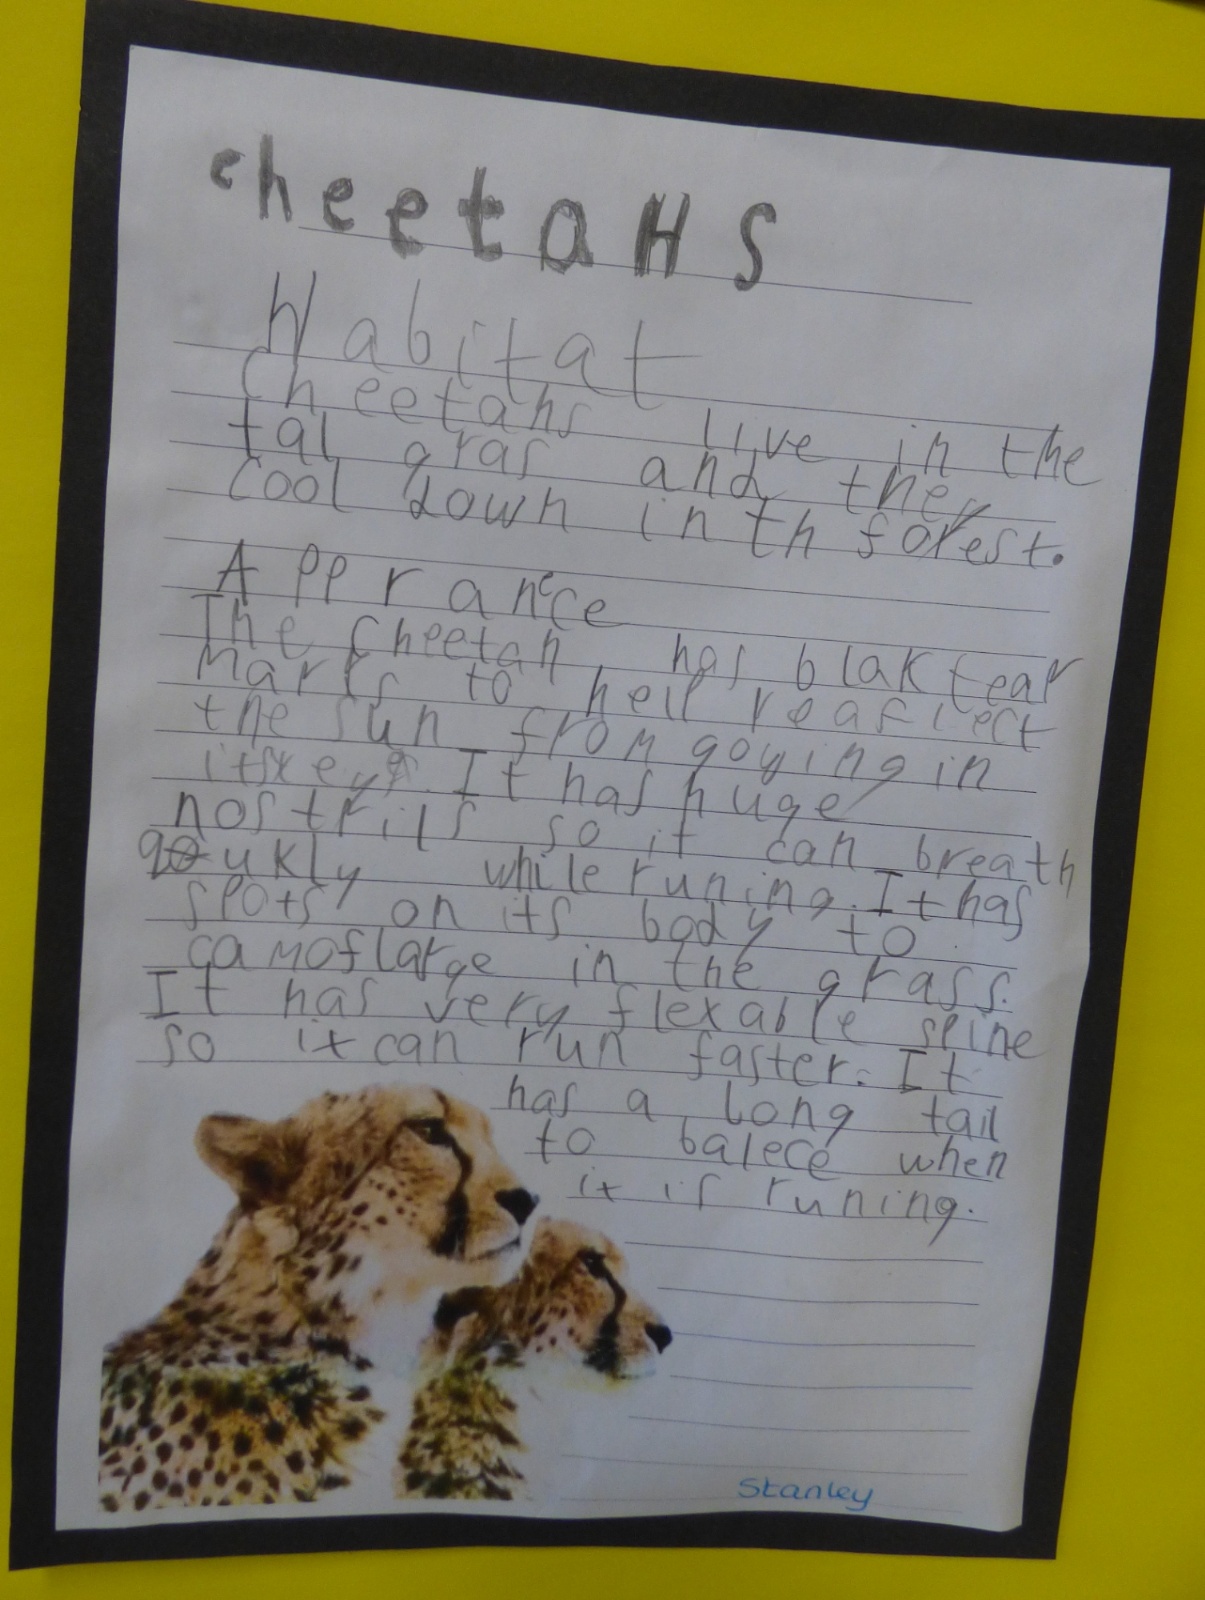 cheetaHS
Habitat
Cheetahs live in the
tal gras and they
cool down in th forest.
Apprance
The cheetah has blak tear
marks to help reaflect
the sun from goying in
its eyes. It has huge
nostrils so it can breath
qukly while runing. It has
spots on its body to
camoflarge in the grass.
It has very flexable spine
so it can run faster. It
has a long tail
to balece when
it is runing.
Stanley